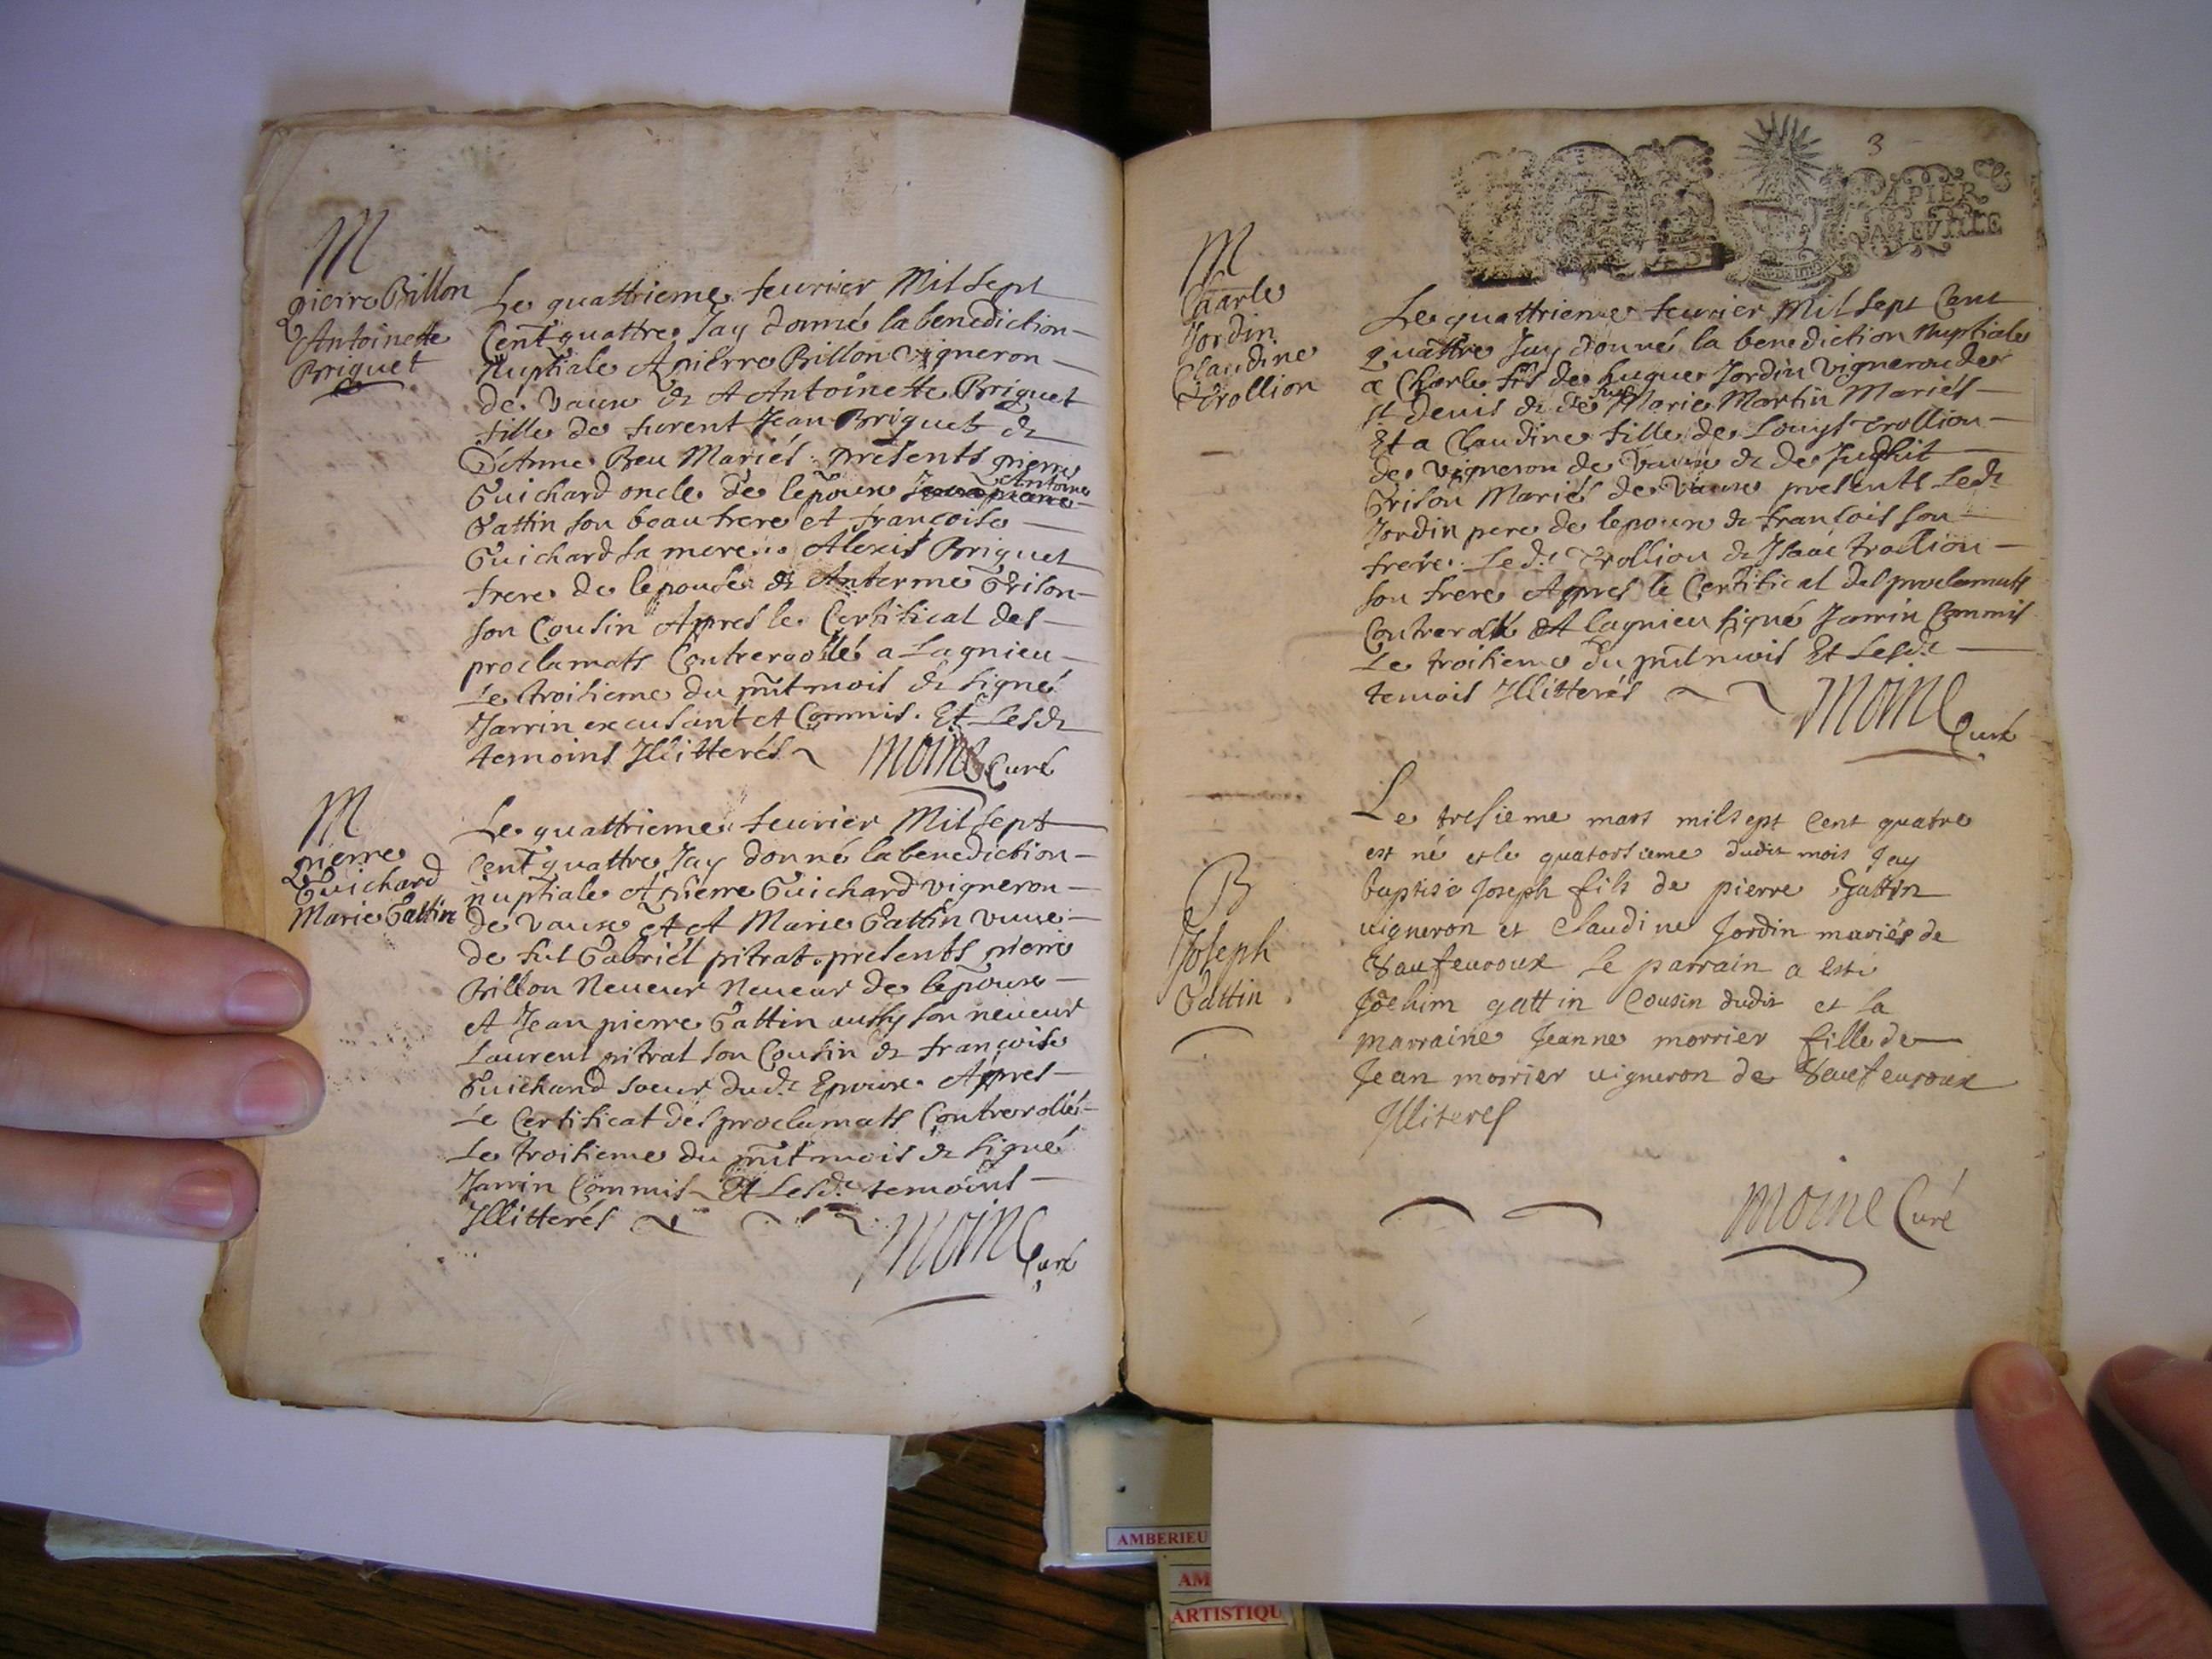 M
pierre Billon
Antoinette
Briguet
Le quattrieme feurier Mil sept
Cent quattre Jay donné la benediction
Nuptiale A pierre Billon Vigneron
de Vaux & A Antoinette Briguet
fille de furent Jean Briguet &
D'Anne Beu Mariés. presents pierre
Guichard oncle de lepoux Antoine
Gattin son beau frere et francoise
Guichard sa mere. Alexis Briguet
frere de lepouse & Anterme Grison
son Cousin Appres le Certificat des
proclamats Contrerollé a Lagnieu
Le troisieme du pnt mois & signé
Jarrin excusant et Commis. Et Lesd.
temoins Illitterés
Moine Curé
M
pierre
Guichard
Marie Gattin
Le quattrieme feurier Mil sept
Cent quattre Jay donné la benediction
nuptiale A pierre Guichard vigneron
de vaux et A Marie Gattin vuue
de fut Gabriel pitrat. presents pierre
Billon Neueur Neueur de lepoux
et Jean pierre Gattin aussy son neueur
Laurent pitrat son Cousin & francoise
Guichard soeur dud. Epoux. Appres
Le Certificat des proclamats Contrerollés
Le troisieme du pnt mois & signé
Jarrin Commis Et Lesd. temoins
Illitterés
Moine Curé
3
PAPIER
M
Charle
Jordin
Claudine
Trollion
Le quattrieme feurier Mil sept Cent
quattre Jay donné la benediction Nuptiale
a Charle fils de hugue Jordin Vigneron de
st denis & de fut Marie Martin Mariés
Et a Claudine fille de Louys trollion
de Vigneron de Vaux & de Judhit
Grison Mariés de Vaux presents Led.
Jordin pere de lepoux & francois son
frere. Led. Trollion & Isaac trollion
son frere Appres le Certificat des proclamats
Contrerollé A lagnieu signé Jarrin Commis
Le troisieme du pnt mois Et Lesd.
temois Illitterés
Moine Curé
B
Joseph
Gattin
Le tresieme mars mil sept Cent quatre
est né et le quatorsieme dudit mois Jay
baptisé Joseph fils de pierre Gattin
uigneron et Claudine Jordin mariés de
Vaufeuroux Le parrain a esté
Joehim gattin Cousin dudit et la
marraine Jeanne morrier fille de
Jean morrier uigneron de Vaufeuroux
Illiteres
Moine Curé
AMBERIEU
AM
ARTISTIQU